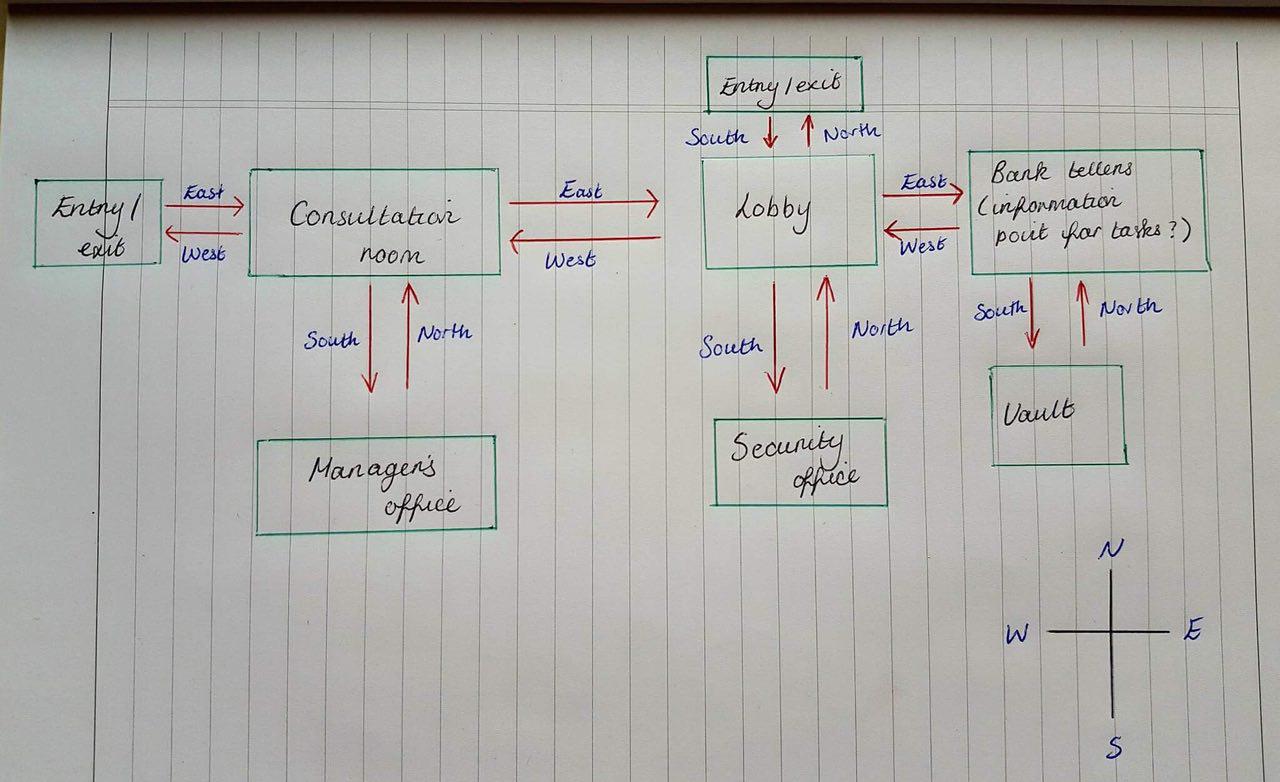 Entry/exit
South
North
Entry/
exit
East
West
Consultation
room
East
West
Lobby
East
West
Bank tellers
(information
point for tasks?)
South
North
South
North
South
North
Manager's
office
Security
office
Vault
N
W
E
S